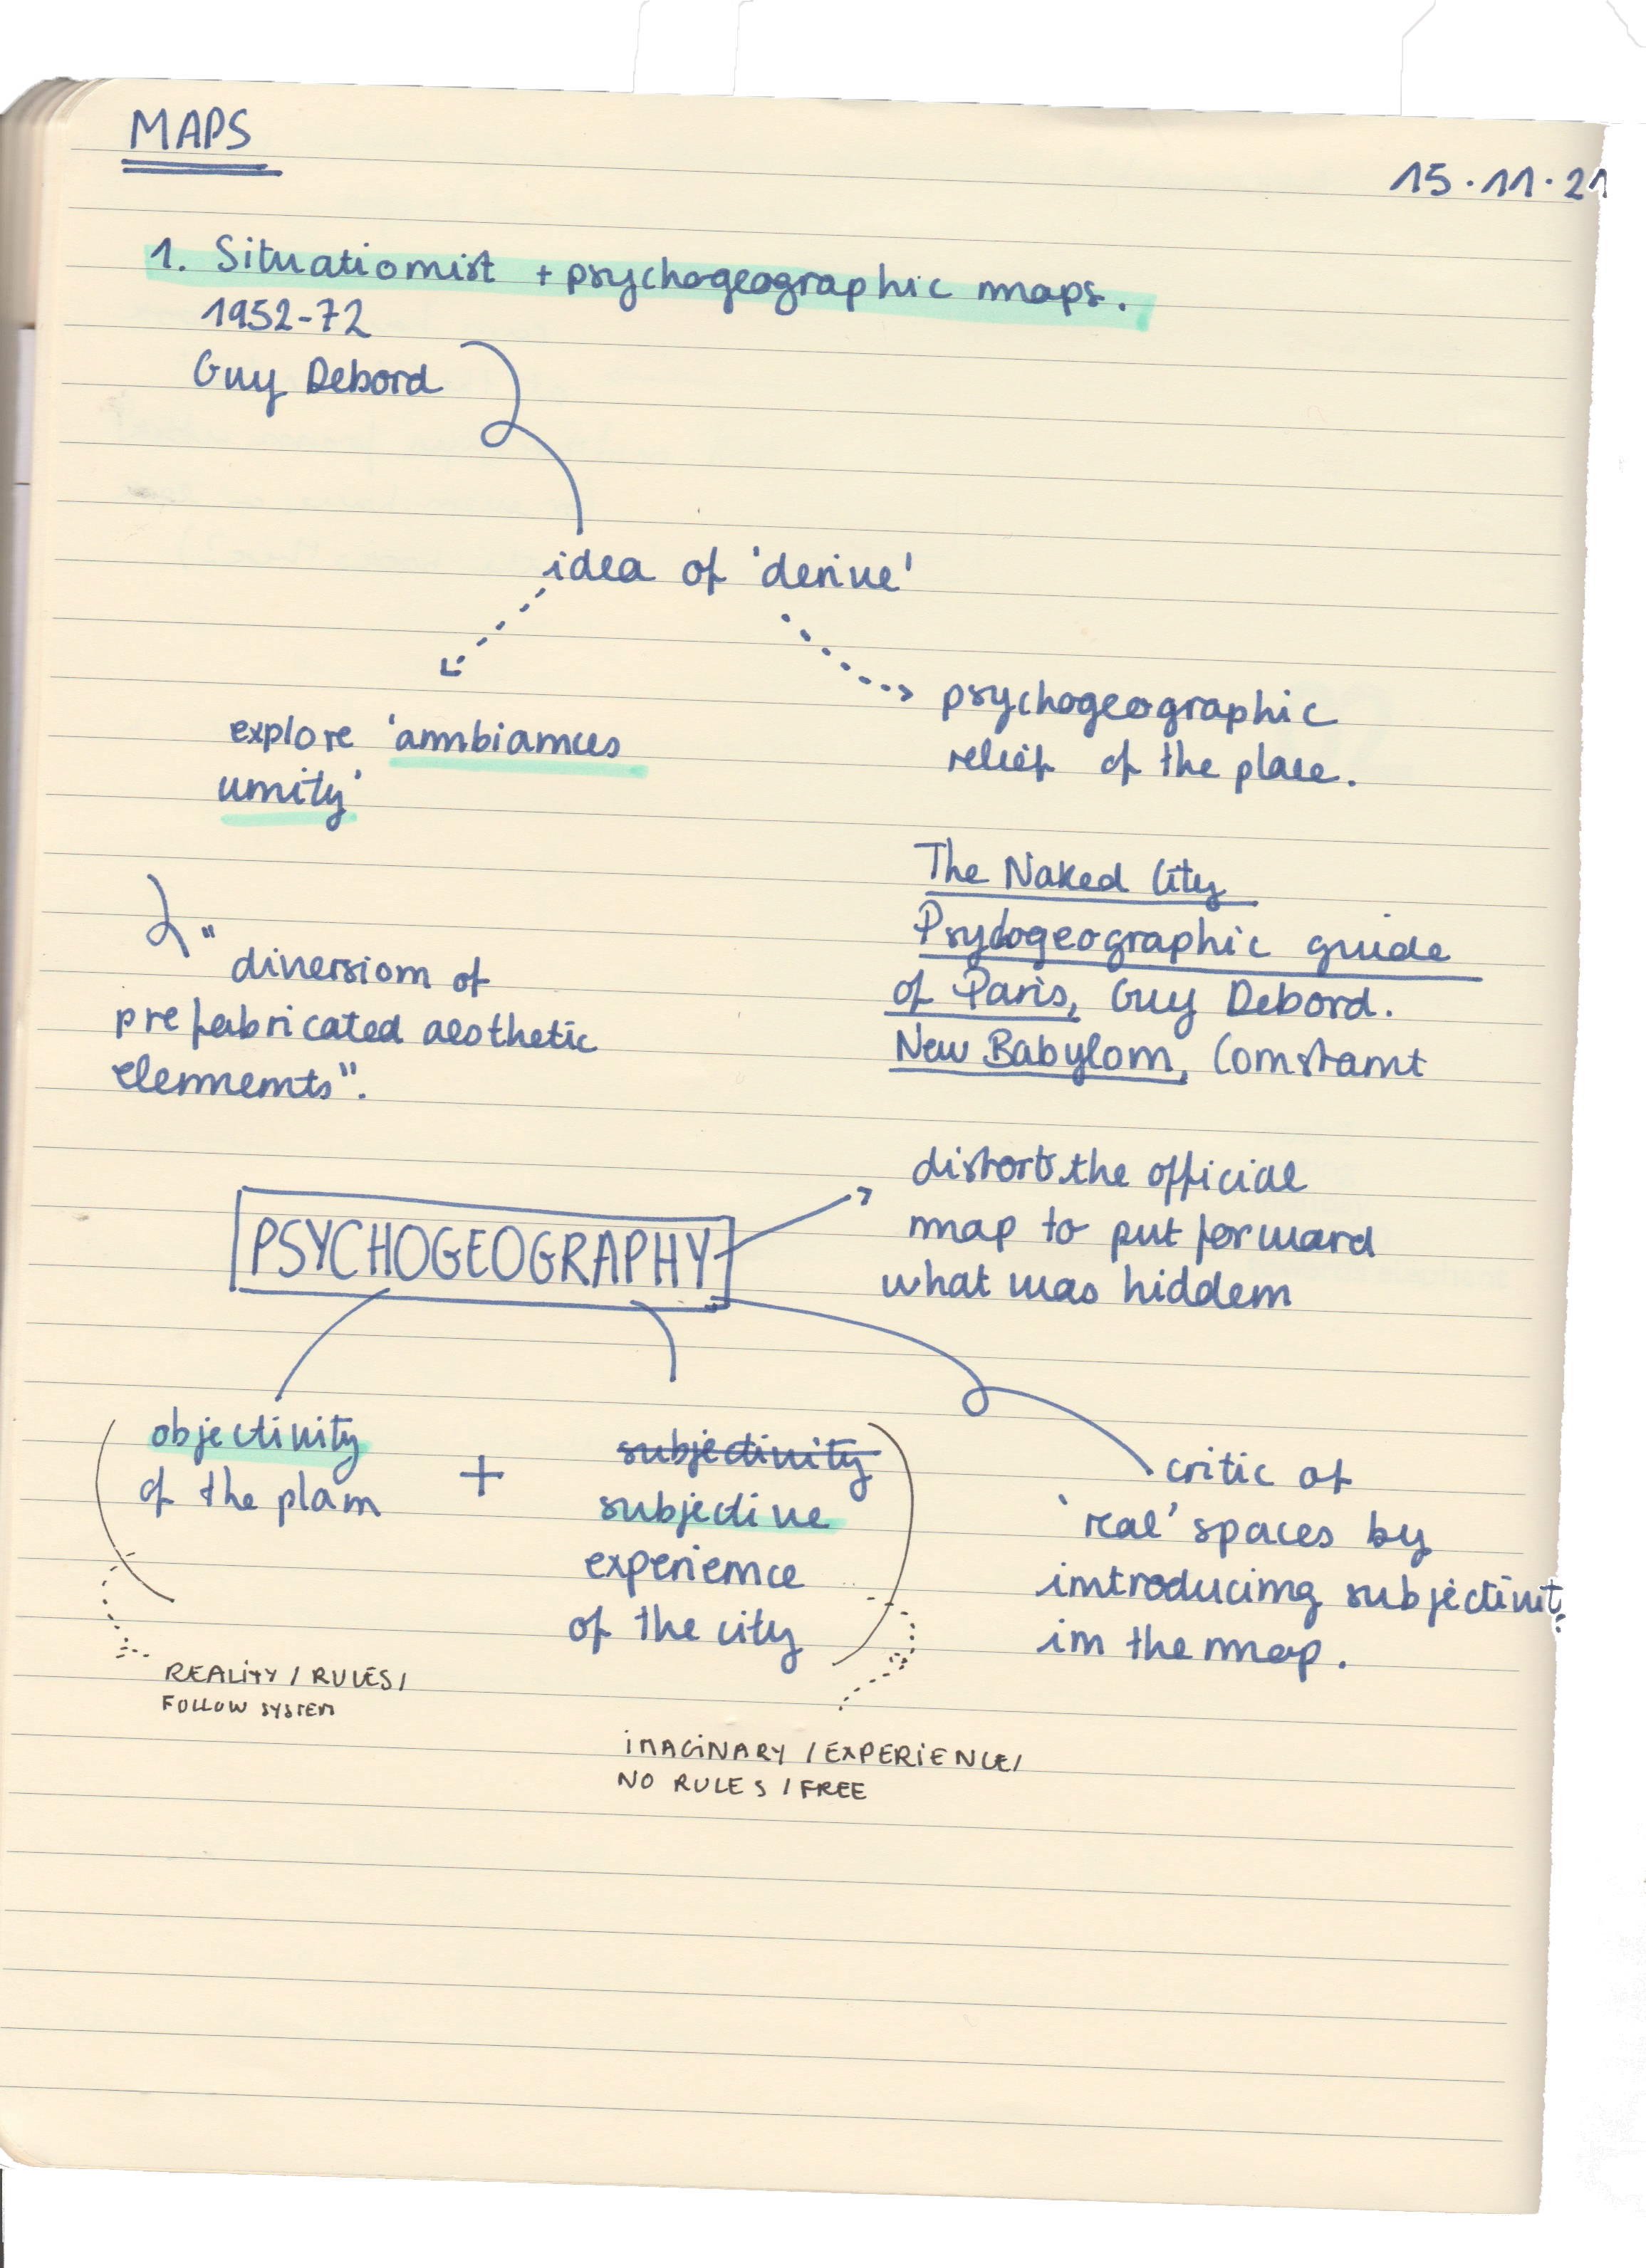 MAPS
15.11.21
1. Situationist + psychogeographic maps.
1952-72
Guy Debord
idea of 'derive'
explore 'ambiances
unity'
psychogeographic
relief of the place.
"diversion of
prefabricated aesthetic
elements".
The Naked City
Psychogeographic guide
of Paris, Guy Debord.
New Babylon, Constant
PSYCHOGEOGRAPHY
distorts the official
map to put forward
what was hidden
objectivity
of the plan
+
subjectivity
subjective
experience
of the city
critic of
'real' spaces by
introducing subjectivit
in the map.
REALITY / RULES /
FOLLOW SYSTEM
IMAGINARY / EXPERIENCE /
NO RULES / FREE